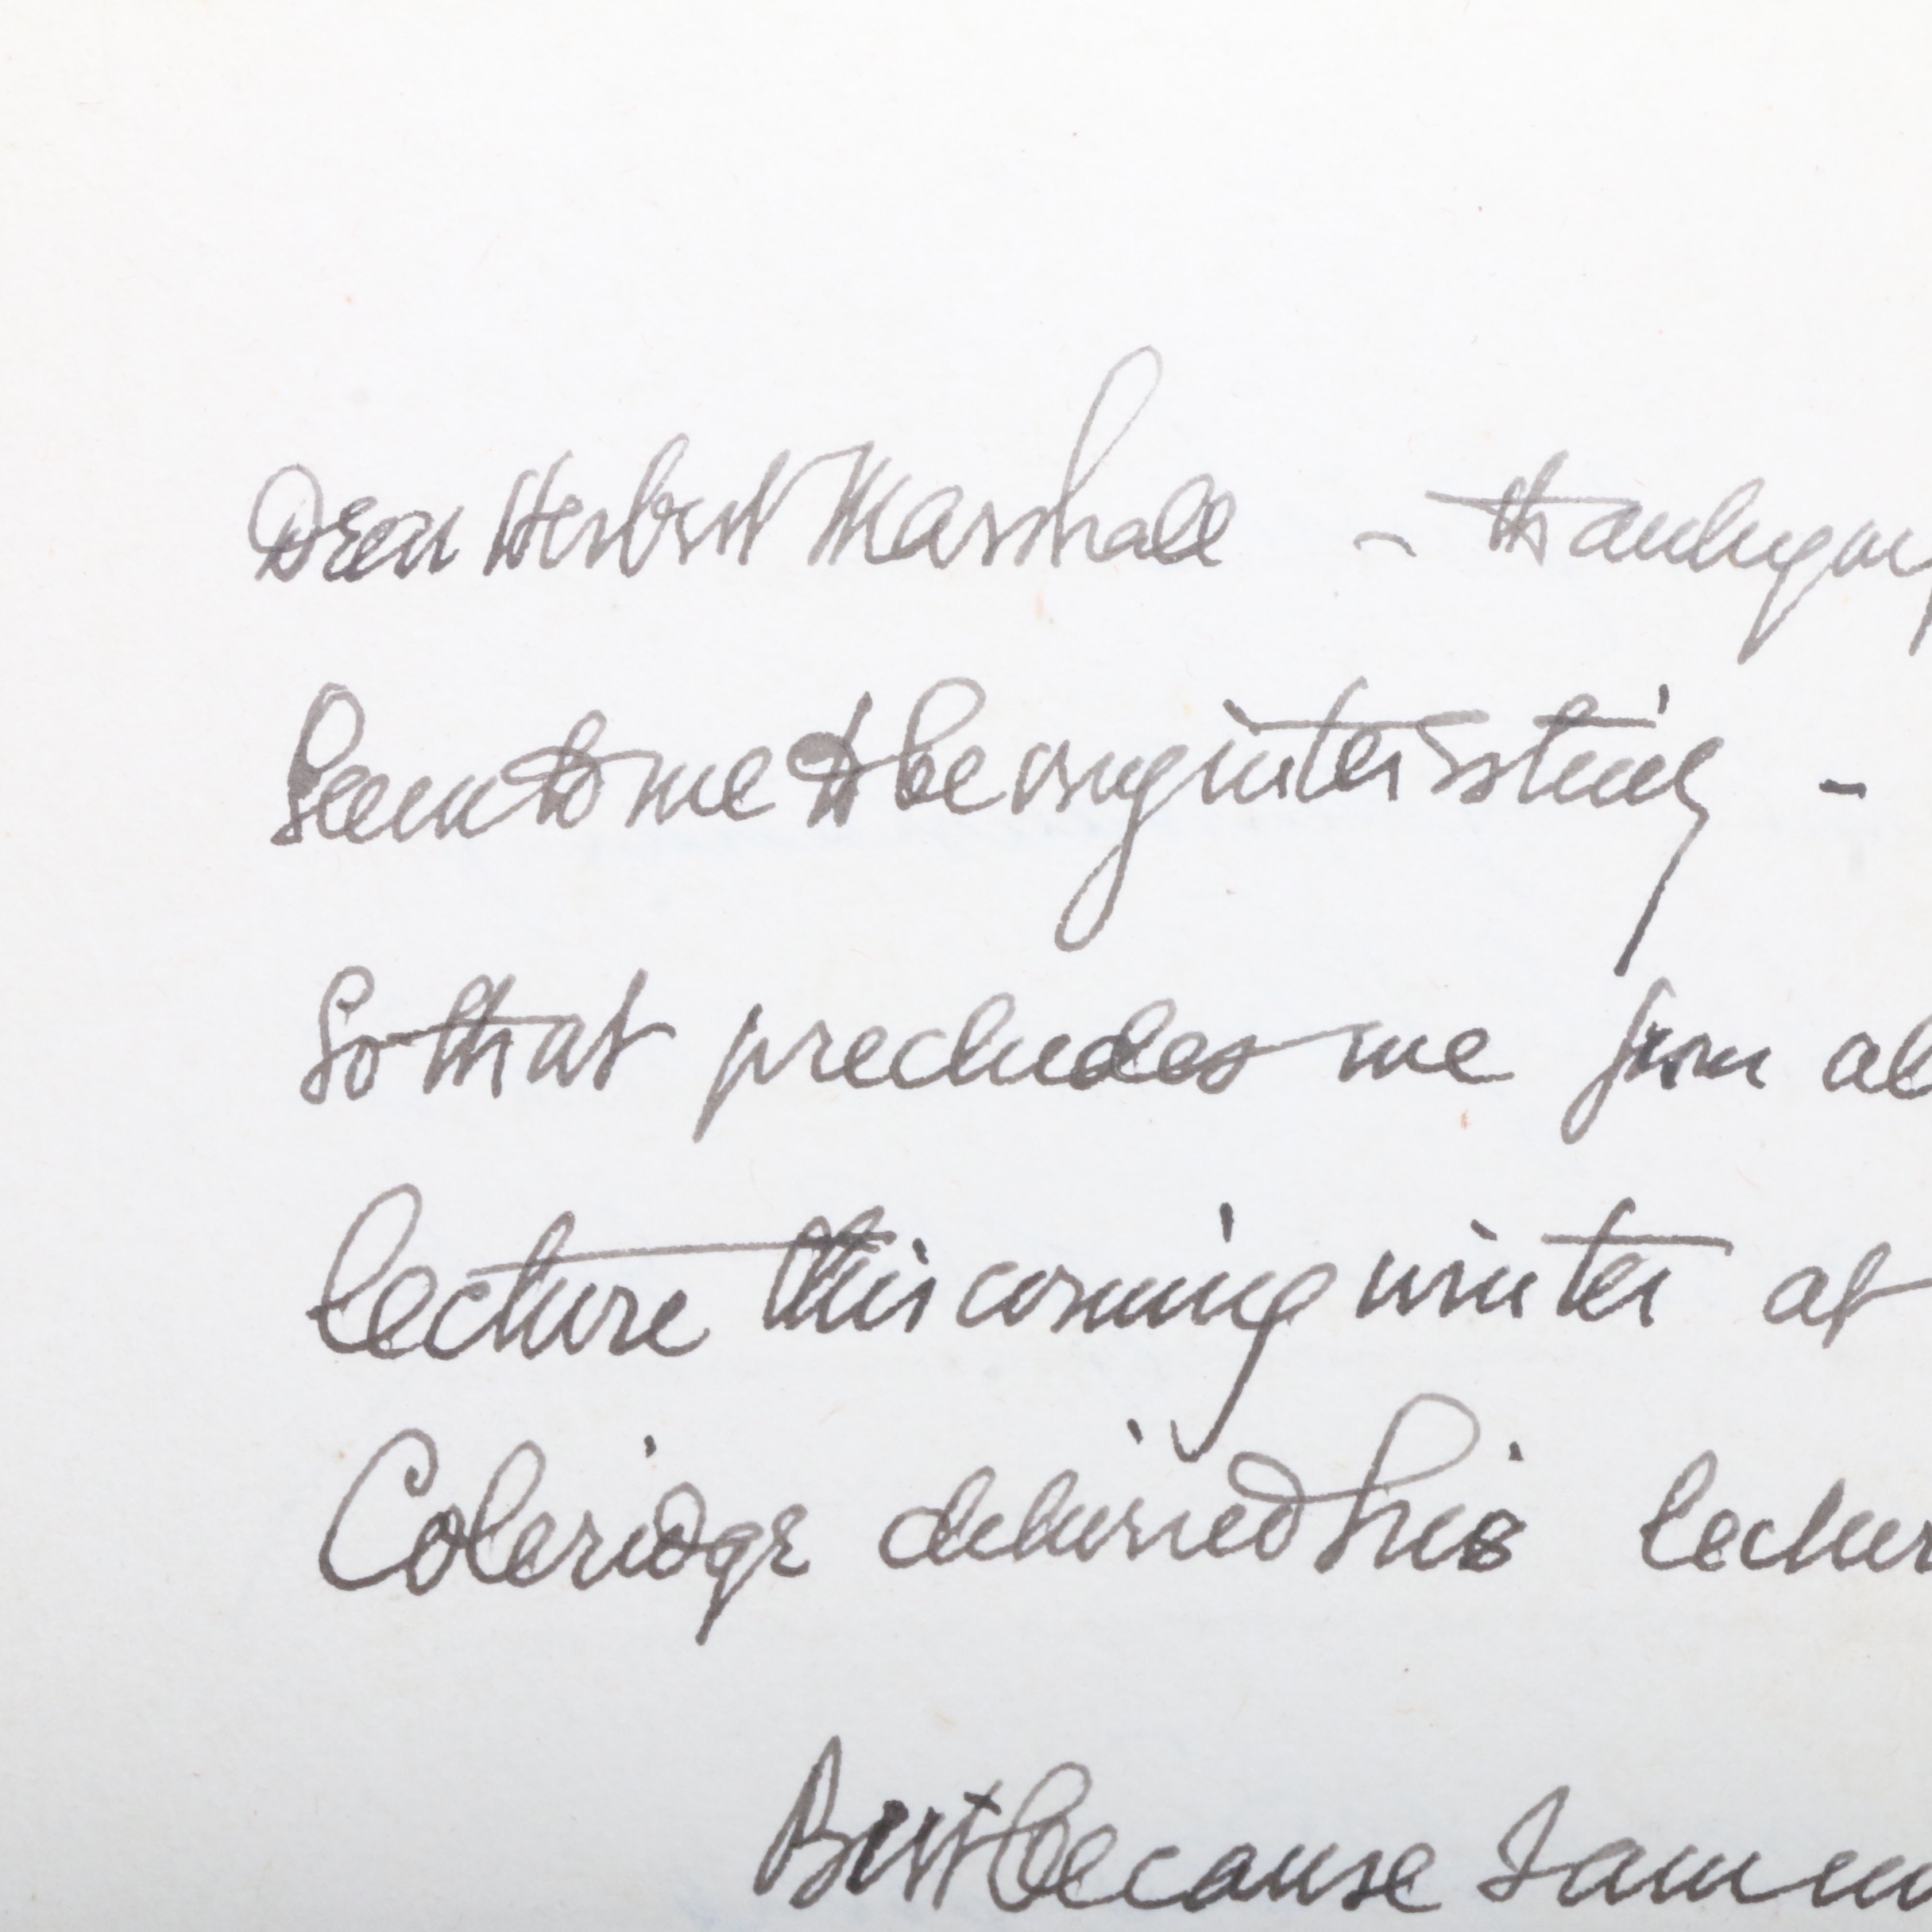 Dear Herbert Marshall - thank you
Seem to me to be very interesting -
So that precludes me from
lecture this coming winter at
Coleridge delivered his
But because I am